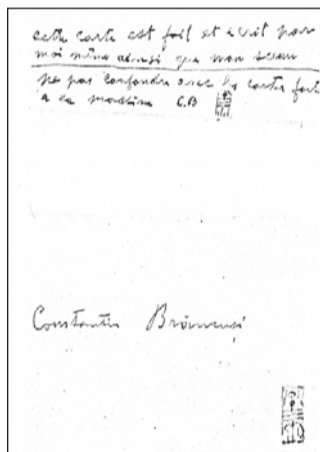 cette carte est fait et écrit par
moi même ainsi que mon sceau
ne pas confondre avec les cartes faite
a la machine C.B
Constantin Brâncuși